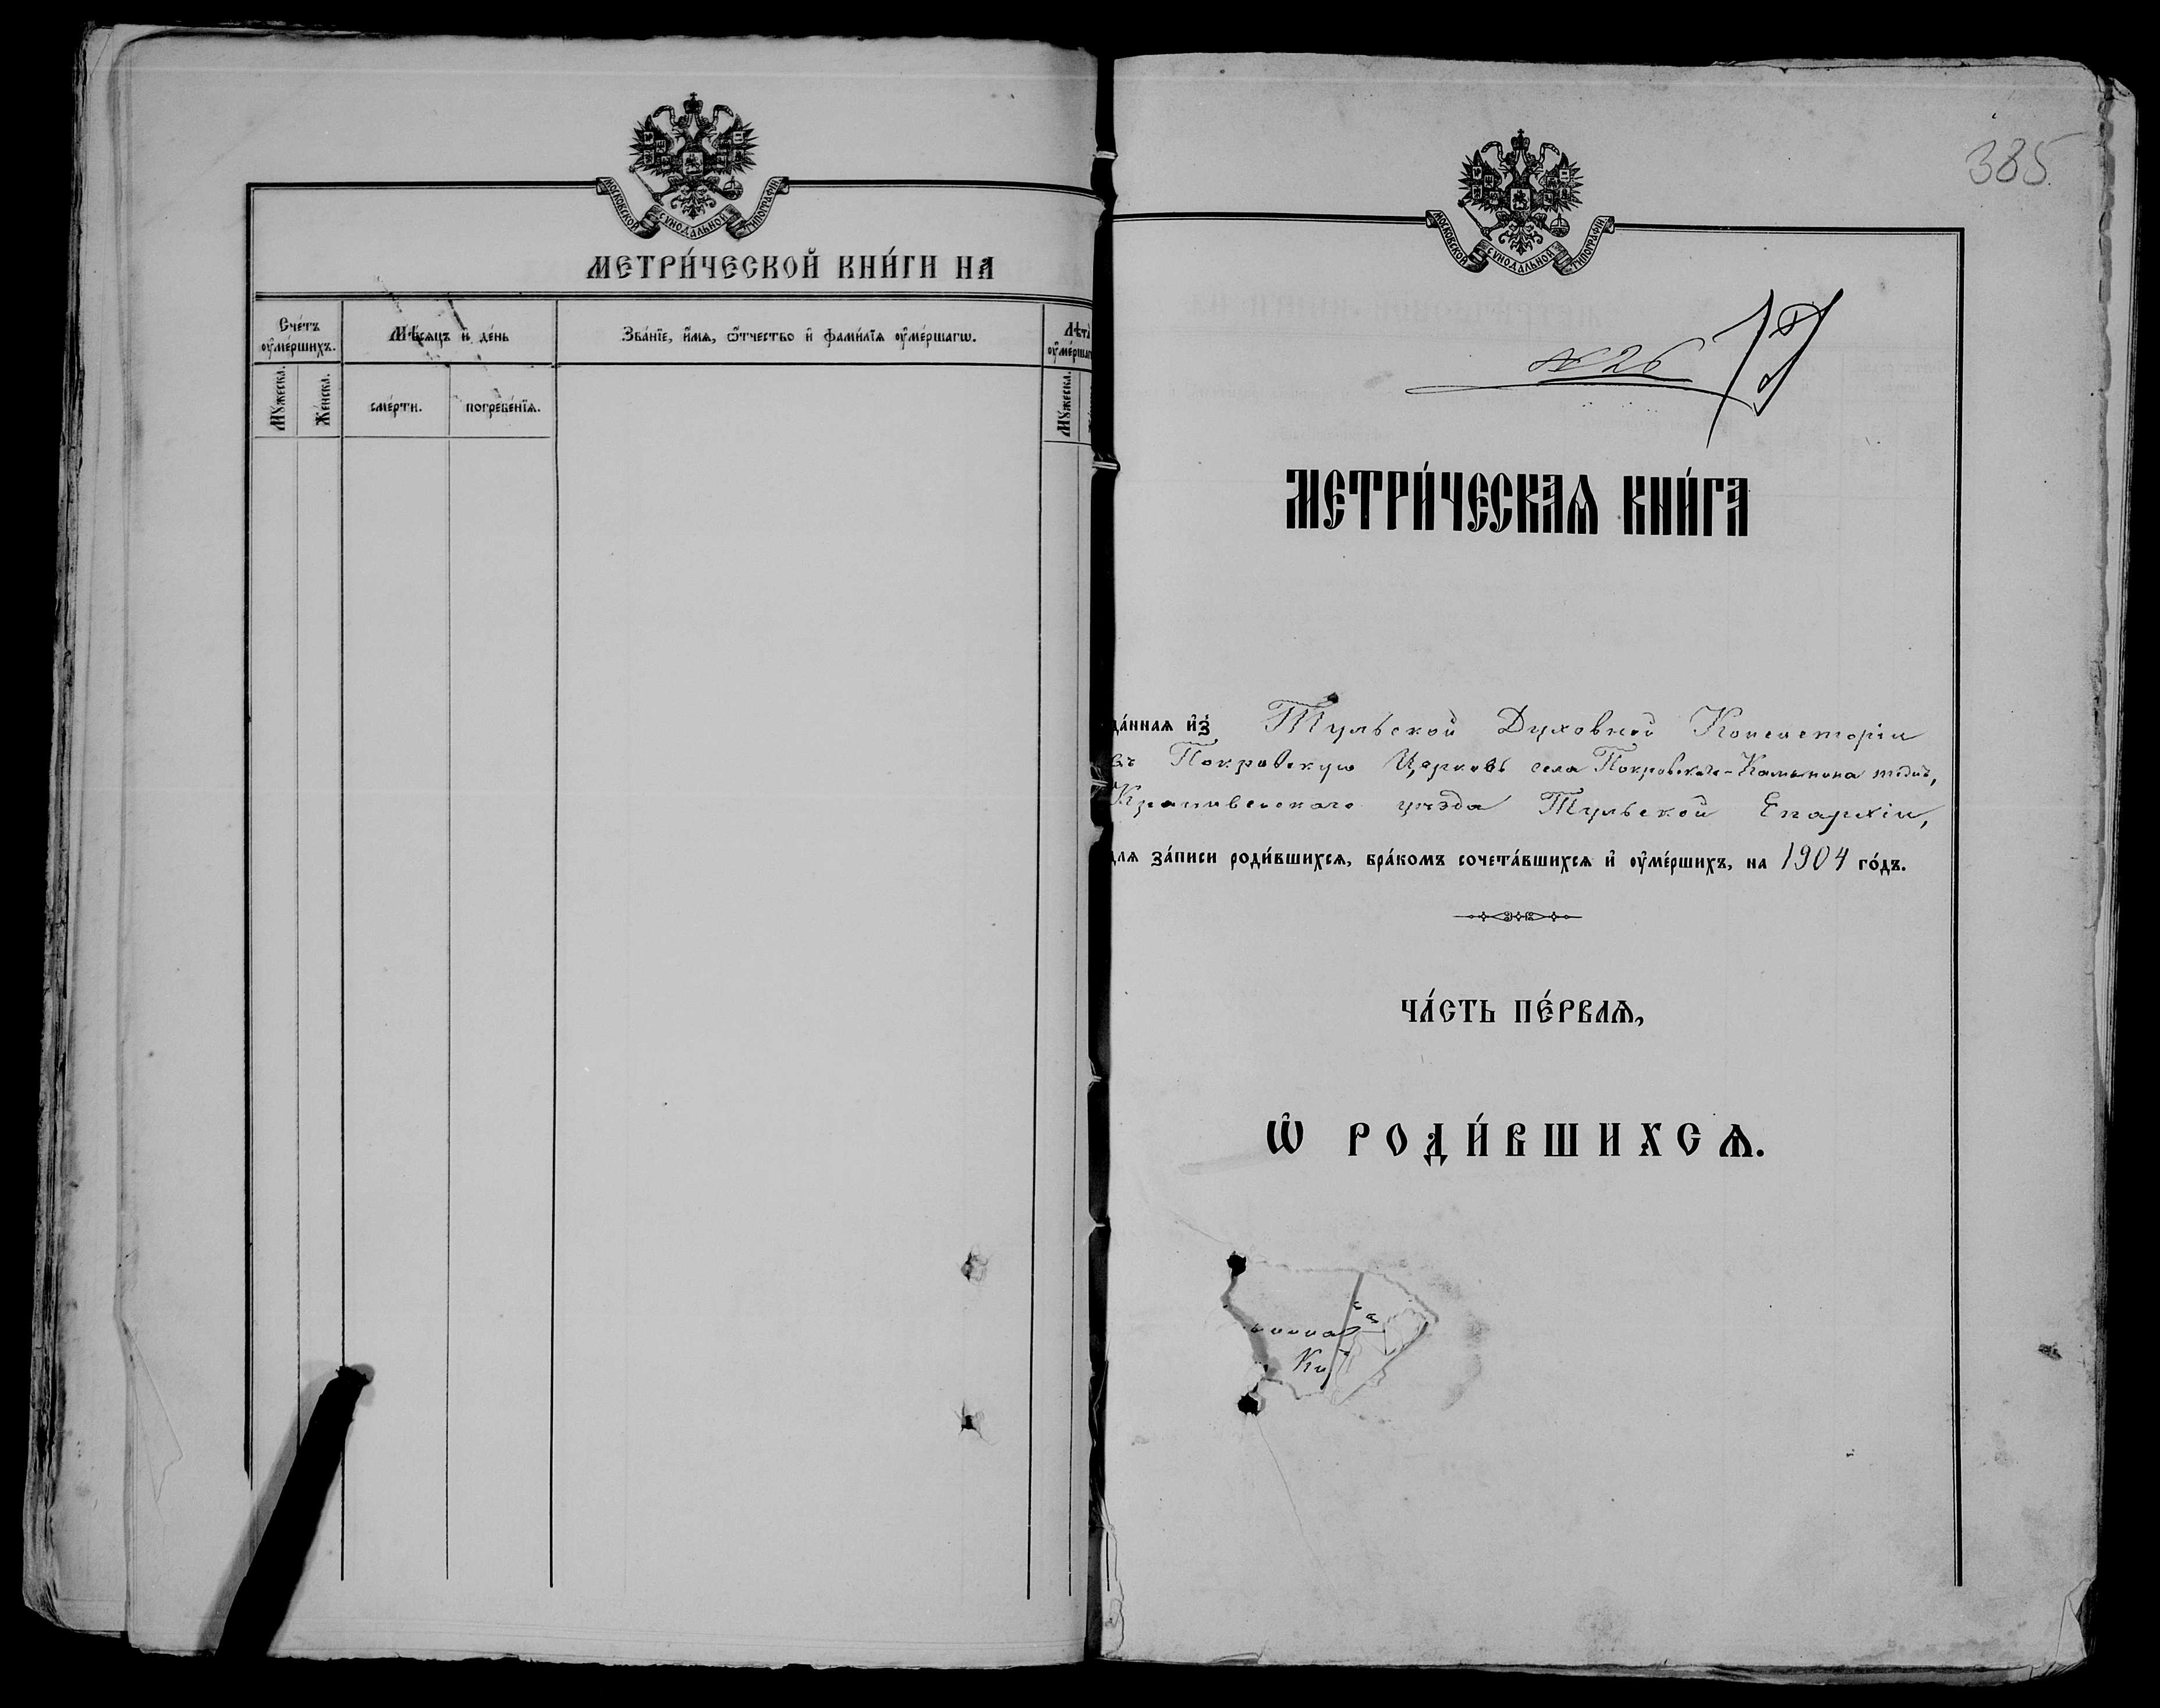 МОСКОВСКОЙ СѴНОДАЛЬНОЙ ТИПОГРАФІИ
МЕТРИ́ЧЕСКОЙ КНИ́ГИ НА
Сче́тъ ᲂу҆ме́ршихъ.
Мѣ́сяцъ и҆ де́нь
Зва́нїе, и҆́мѧ, ѻ҆́тчество и҆ фами́лїѧ ᲂу҆ме́ршагѡ.
Лѣта̀
Мꙋ́жеска.
Же́нска.
сме́рти.
погребе́нїѧ.
Мꙋ́жеска.
385
МОСКОВСКОЙ СѴНОДАЛЬНОЙ ТИПОГРАФІИ
№ 26
МЕТРИ́ЧЕСКАѦ КНИ́ГА
да́ннаѧ и҆з̾ Тульской Духовной Консисторіи
въ Покровскую Церковь села Покровскаго-
Крапивенскаго уѣзда Тульской Епархіи,
для за́писи роди́вшихсѧ, бра́комъ сочета́вшихсѧ и҆ ᲂу҆ме́ршихъ, на 1904 го́дъ.
ЧА́СТЬ ПЕ́РВАѦ,
Ѡ҆ РОДИ́ВШИХСѦ.